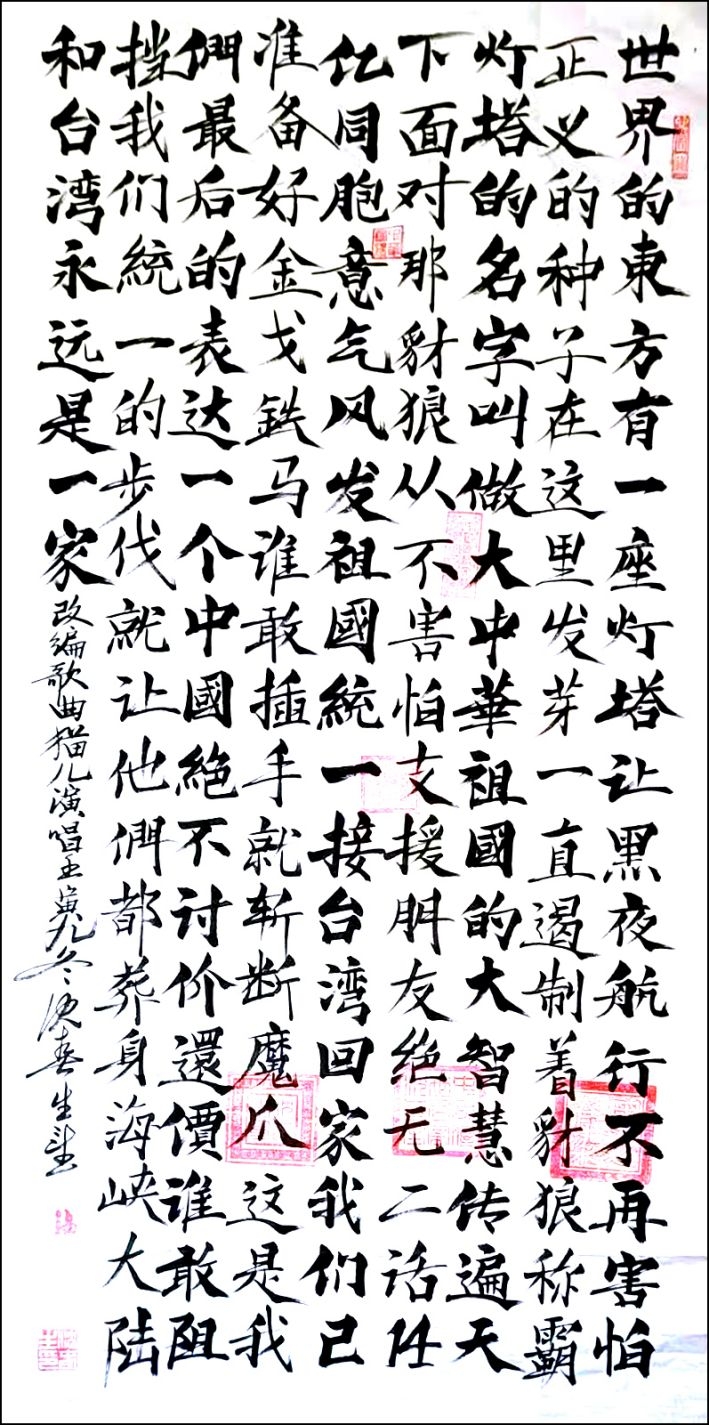 世界的東方有一座灯塔让黑夜航行不再害怕
正义的种子在这里发芽一直遏制着豺狼称霸
灯塔的名字叫做大中華祖國的大智慧传遍天
下面对那豺狼从不害怕支援朋友绝无二话任
亿同胞意气风发祖國統一接台湾回家我们已
准备好金戈鉄马谁敢插手就斩断魔爪这是我
們最后的表达一个中國絶不讨价還價谁敢阻
挡我们統一的步伐就让他們都葬身海峡大陆
和台湾永远是一家
改编歌曲猫儿演唱壬寅九冬春生